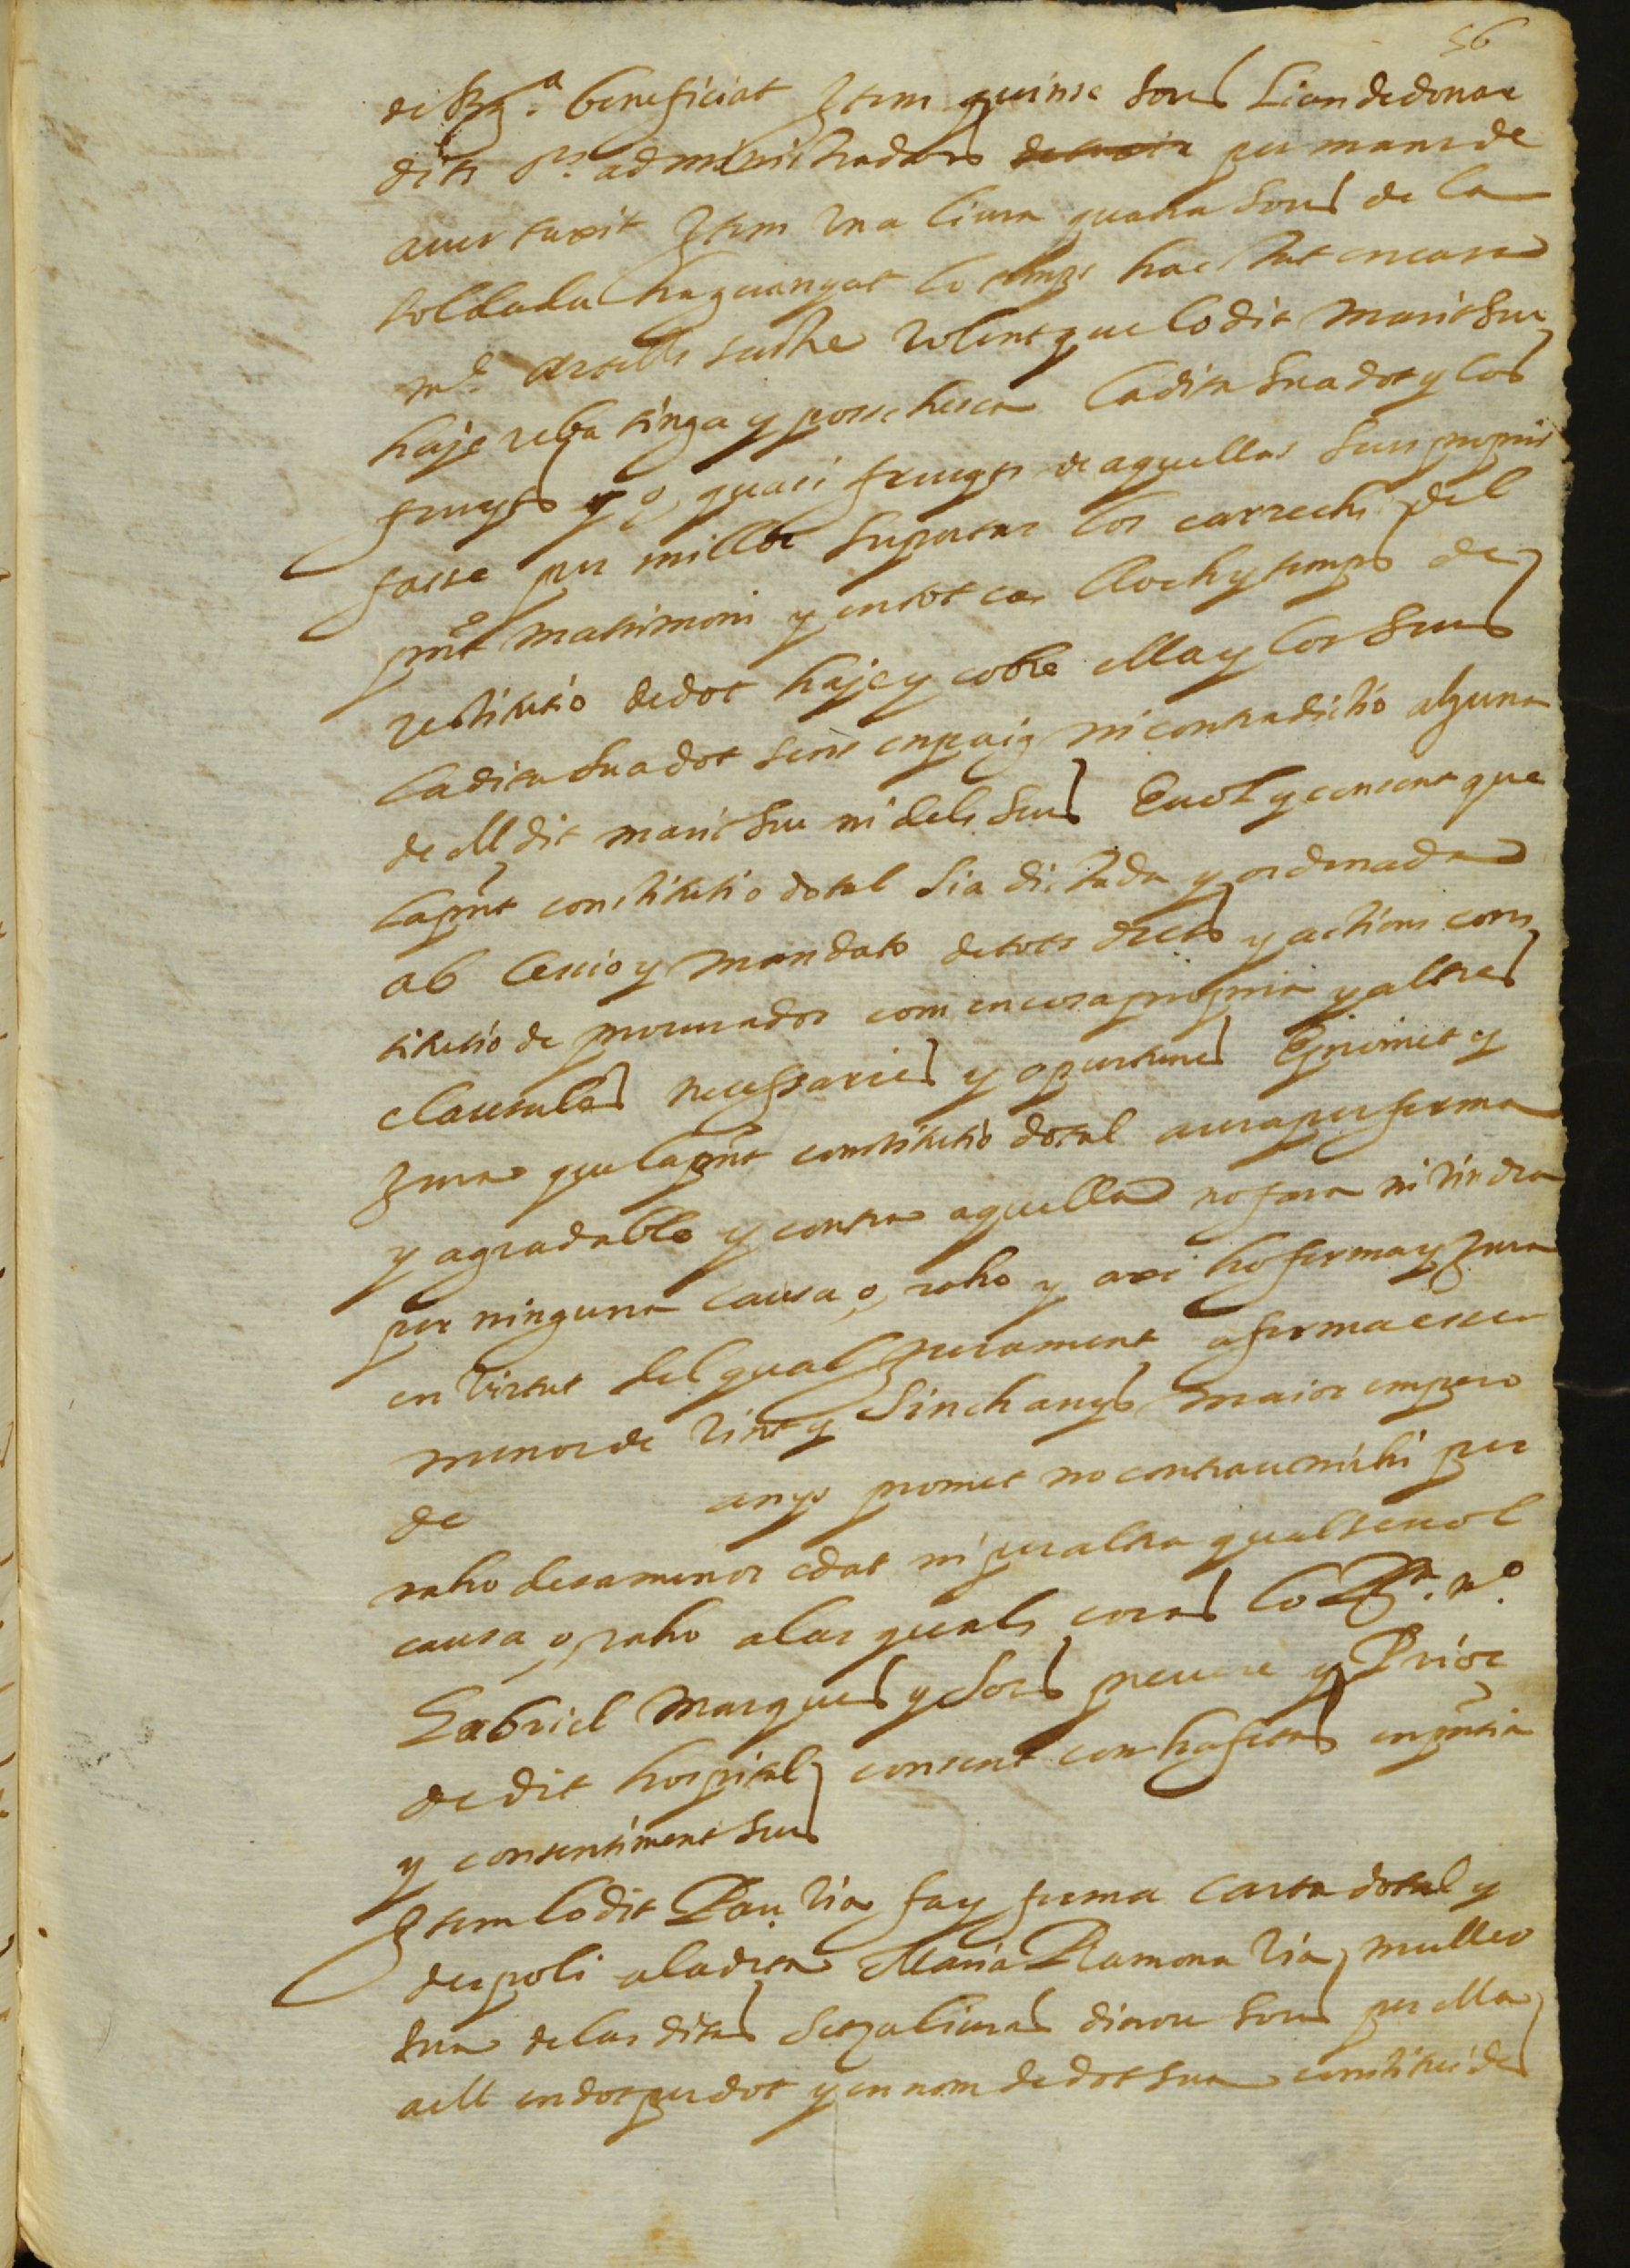 56
beneficiat Item quinse sous li an de donar
dits S.rs administradors per mans de
Item una liura quatra sous de la
soldada ha guanyat lo temps ha estat en casa
m.e sastre volent que lo dit marit seu
haje reba tinga y possehesca la dita sua dot y los
fruyts y o, quasi fruyts de aquellas seus propris
fasse per millor suportar los carrechs del
pñt matrimoni y en tot cas lloch y temps de
restitutio de dot haje y cobre ella y los seus
la dita sua dot sens enpaig ni contradictio alguna
de ell dit marit seu ni dels seus E vol y consent que
la pñt constitutio dotal sia dictada y ordenada
ab cessio y mandato de tots drets y actions cons
titutio de procurador com en cosa propria y altres
clausules necessaries y oportunes E promet y
jura que la pñt constitutio dotal aura per ferma
y agradable y contra aquella no fara ni vindra
per ninguna causa o, raho y axi ho ferma y jura
en virtut del qual jurament aferma esser
menor de vint y sinch anys maior empero
de anys promet no contrauenirhi per
raho de sa menor edat ni per altra qualseuol
causa o, raho a las quals cosas lo R.t m.o
Gabriel Marques y Sors preuere y Prior
de dit hospital consent com ha fetas en pñtia
y consentiment seu
Item lo dit Pau Via fa y ferma carta dotal y
despoli a la dita Maria Ramona Via muller
sua de las ditas setza liuras dinou sous per ella
a ell en dot per dot y en nom de dot sua constituides